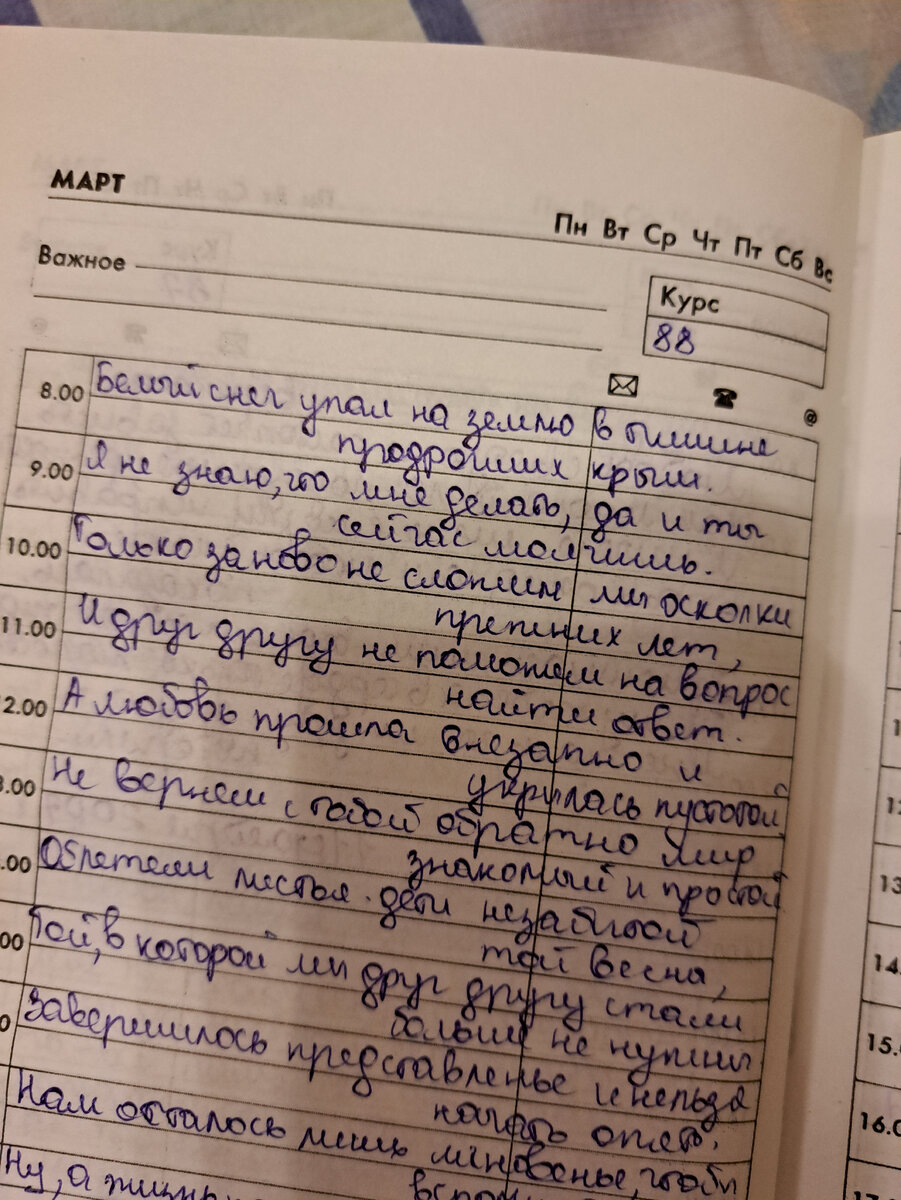 МАРТ
Пн Вт Ср Чт Пт Сб Вс
Важное
Курс
88
8.00 Белый снег упал на землю в тишине
продрогших крыш.
9.00 Я не знаю, что мне делать, да и ты
сейчас молчишь.
10.00 Только заново не сложим мы осколки
прежних лет,
11.00 И друг другу не поможем на вопрос
найти ответ.
2.00 А любовь прошла внезапно и
укрылась пустотой,
3.00 Не вернем с тобой обратно мир
знакомый и простой
.00 Облетели листья. дети незабытой
той весны,
00 Той, в которой мы друг другу стали
больше не нужны
0 Завершилось представленье и нельзя
начать опять.
Нам осталось лишь мгновенье, чтобы
Ну, а жизнь
12
13
14.
15.
16.0